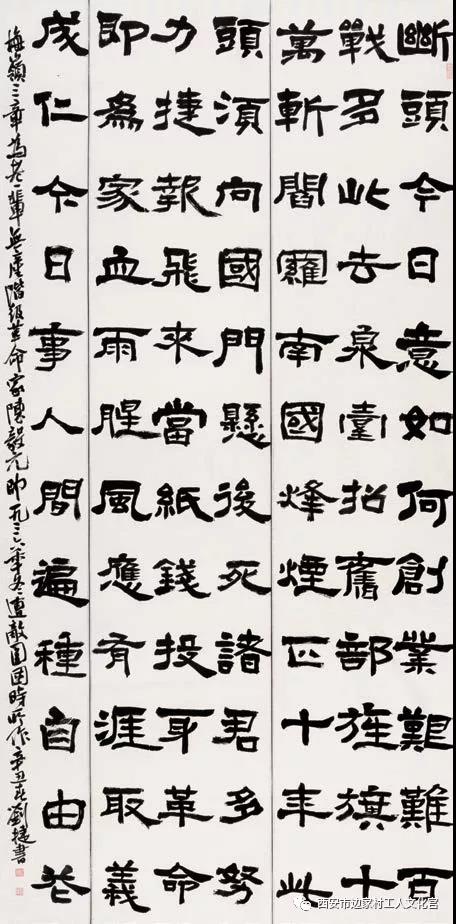 斷頭今日意如何創業艱難百
戰多此去泉臺招舊部旌旗十
萬斬閻羅南國烽煙正十年此
頭須向國門懸後死諸君多努
力捷報飛來當紙錢投身革命
即為家血雨腥風應有涯取義
成仁今日事人間遍種自由花
梅嶺三章為老一輩無產階級革命家陳毅元帥一九三六年冬遭敵圍困時所作辛丑春劉捷書
西安市边家村工人文化宫